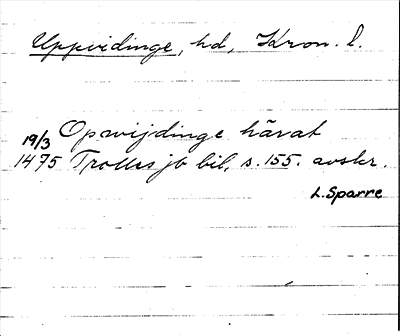 Uppvidinge, hd, Kron. l.
Opwijdinge härat
19/3
1475 Trolles jb bil, s. 155. avskr.
L. Sparre